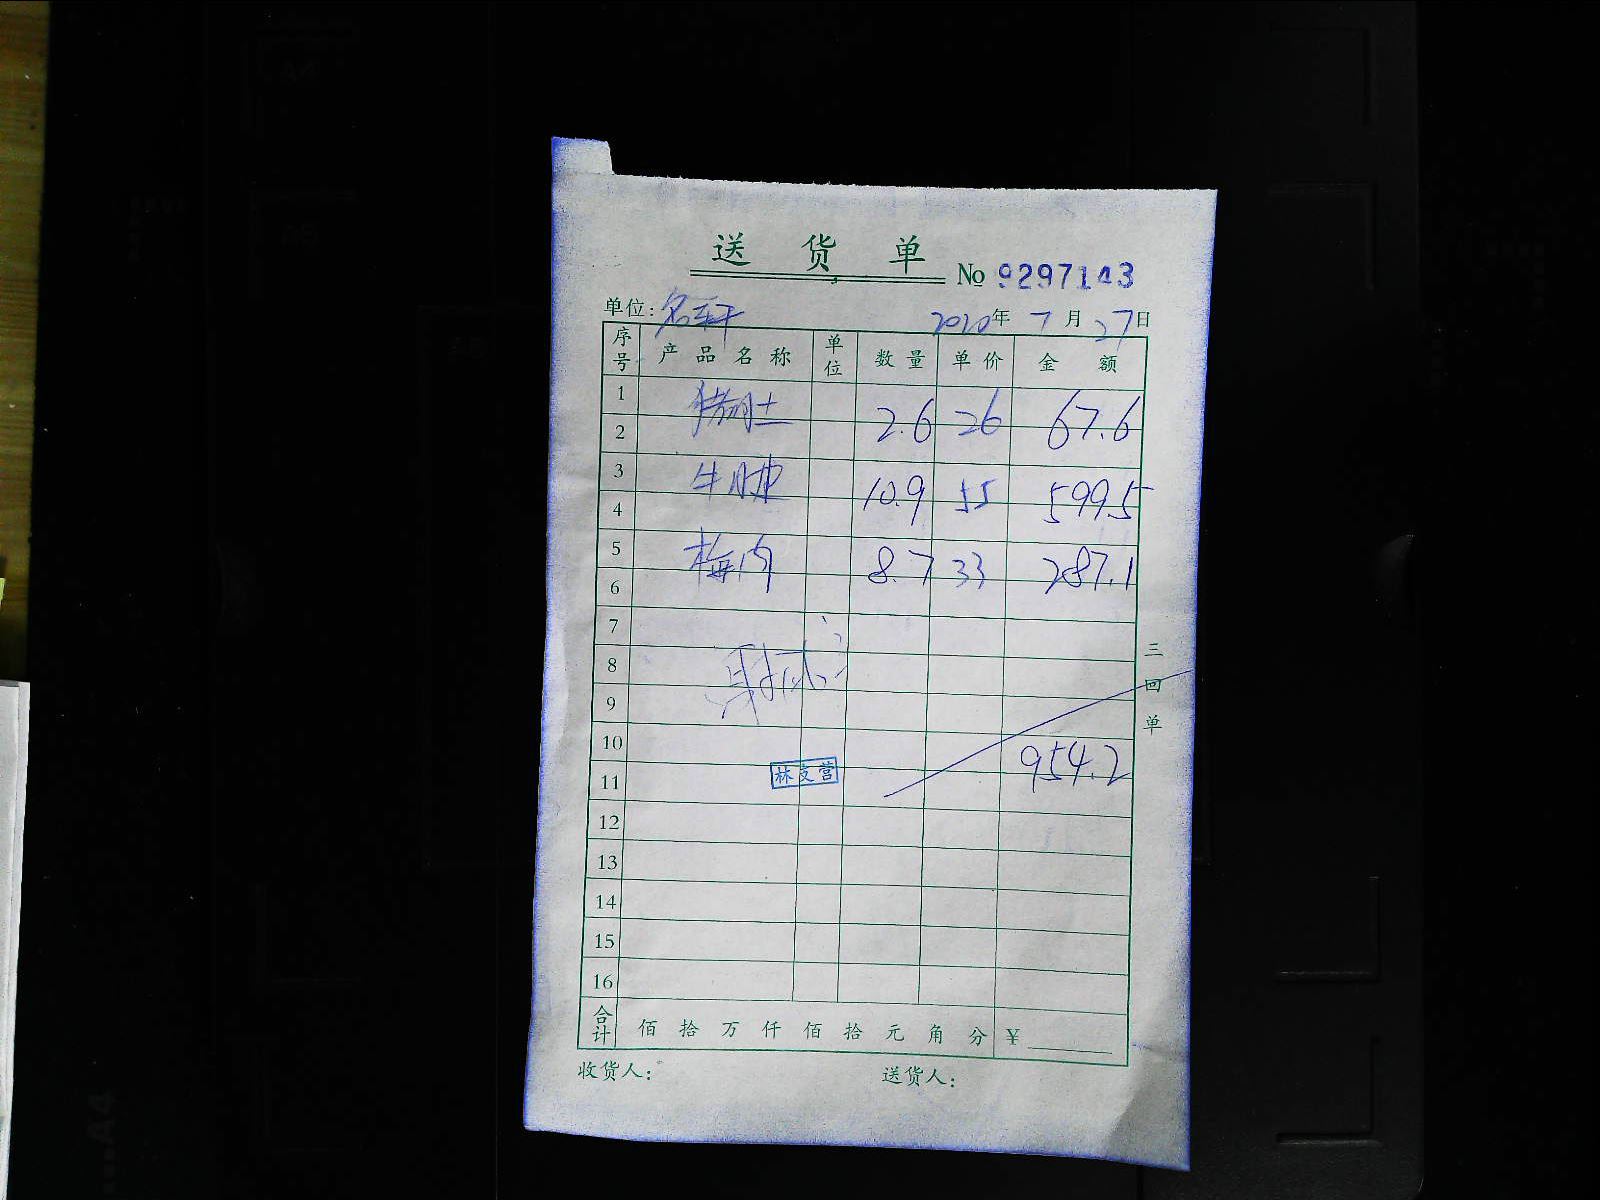 送货单
No 9297143
单位: 名轩 2020年 7月 27日
序号 产品名称 单位 数量 单价 金额
1
2.6 26 67.6
2
3
牛肚 10.9 55 599.5
4
5
梅肉 8.7 33 287.1
6
7
8
9
10
954.2
11
林支营
12
13
14
15
16
合计 佰 拾 万 仟 佰 拾 元 角 分 ¥
收货人: 送货人:
三回单